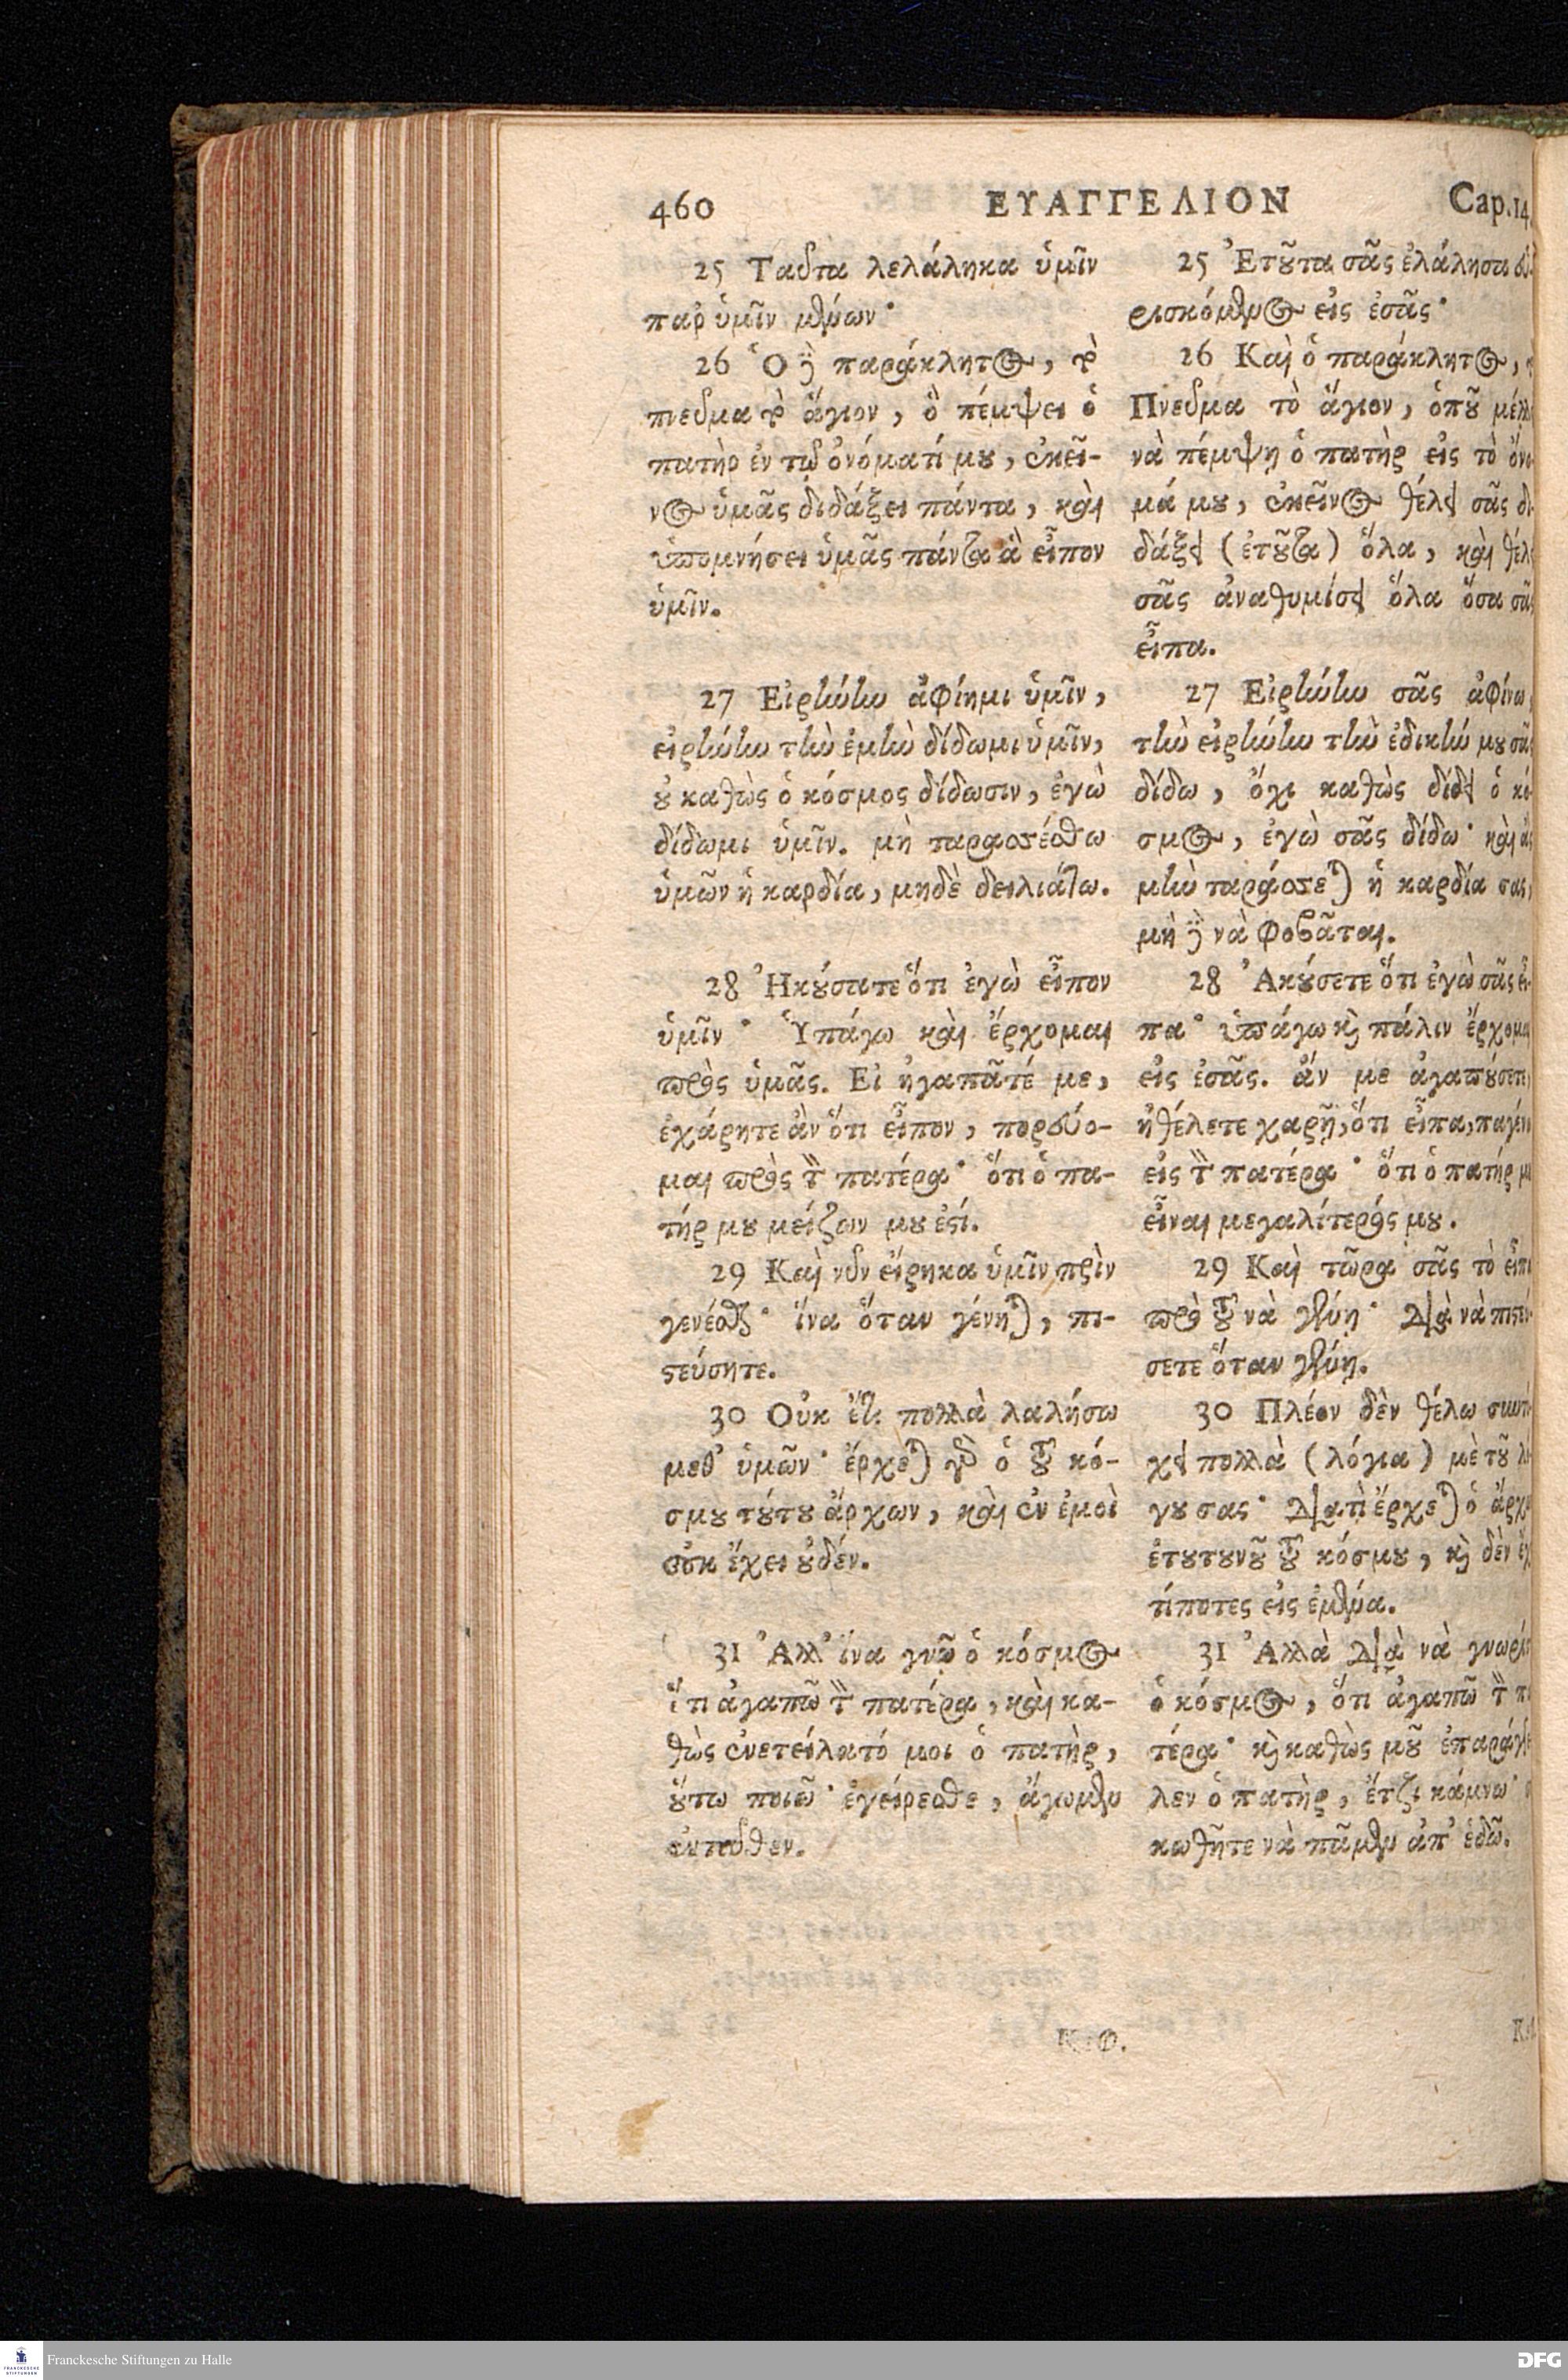 460 ΕΥΑΓΓΕΛΙΟΝ Cap.14
25 Ταῦτα λελάληκα ὑμῖν
παρ ὑμῖν μένων·
26 Ὁ δὲ παράκλητος, τὸ
πνεῦμα τὸ ἅγιον, ὃ πέμψει ὁ
πατὴρ ἐν τῷ ὀνόματί μου, ἐκεῖ-
νος ὑμᾶς διδάξει πάντα, καὶ
ὑπομνήσει ὑμᾶς πάντα ἃ εἶπον
ὑμῖν.
27 Εἰρήνην ἀφίημι ὑμῖν,
εἰρήνην τὴν ἐμὴν δίδωμι ὑμῖν,
οὐ καθὼς ὁ κόσμος δίδωσιν, ἐγὼ
δίδωμι ὑμῖν. μὴ ταρασσέσθω
ὑμῶν ἡ καρδία, μηδὲ δειλιάτω.
28 Ἠκούσατε ὅτι ἐγὼ εἶπον
ὑμῖν· Ὑπάγω καὶ ἔρχομαι
πρὸς ὑμᾶς. Εἰ ἠγαπᾶτέ με,
ἐχάρητε ἂν ὅτι εἶπον, πορεύο-
μαι πρὸς τὸν πατέρα· ὅτι ὁ πα-
τήρ μου μείζων μου ἐστί.
29 Καὶ νῦν εἴρηκα ὑμῖν πρὶν
γενέσθαι· ἵνα ὅταν γένηται, πι-
στεύσητε.
30 Οὐκ ἔτι πολλὰ λαλήσω
μεθ' ὑμῶν· ἔρχεται γὰρ ὁ τοῦ κό-
σμου τούτου ἄρχων, καὶ ἐν ἐμοὶ
οὐκ ἔχει οὐδέν.
31 Ἀλλ' ἵνα γνῷ ὁ κόσμος
ὅτι ἀγαπῶ τὸν πατέρα, καὶ κα-
θὼς ἐνετείλατό μοι ὁ πατὴρ,
οὕτω ποιῶ· ἐγείρεσθε, ἄγωμεν
ἐντεῦθεν.
25 Ἐτοῦτα σᾶς ἐλάλησα
ρισκόμενος εἰς ἐσᾶς·
26 Καὶ ὁ παράκλητος,
Πνεῦμα τὸ ἅγιον, ὁποῦ
νὰ πέμψῃ ὁ πατὴρ εἰς τὸ ὄνο-
μά μου, ἐκεῖνος θέλει σᾶς δι-
δάξει (ἐτοῦτα) ὅλα, καὶ θέλει
σᾶς ἀναθυμίσει ὅλα ὅσα σᾶς
εἶπα.
27 Εἰρήνην σᾶς ἀφίνω,
τὴν εἰρήνην τὴν ἐδικήν μου σᾶς
δίδω, ὄχι καθὼς δίδει ὁ κό-
σμος, ἐγὼ σᾶς δίδω· καὶ ἂς
μὴν ταράσσεται ἡ καρδία σας,
μὴ δὲ νὰ φοβᾶται.
28 Ἀκούσετε ὅτι ἐγὼ σᾶς εἶ-
πα· ὑπάγω καὶ πάλιν ἔρχομαι
εἰς ἐσᾶς. ἄν με ἀγαπούσετε,
ἠθέλετε χαρῇ, ὅτι εἶπα, παγένω
εἰς τὸν πατέρα· ὅτι ὁ πατήρ μου
εἶναι μεγαλίτερός μου.
29 Καὶ τῶρα σᾶς τὸ εἶπα
πρὸ τοῦ νὰ γένῃ· διὰ νὰ πιστεύ-
σετε ὅταν γένῃ.
30 Πλέον δὲν θέλω συντύ-
χει πολλὰ (λόγια) μὲ τοῦ λό-
γου σας· διατὶ ἔρχεται ὁ
ἐτουτουνοῦ τοῦ κόσμου, καὶ δὲν
τίποτες εἰς ἐμένα.
31 Ἀλλὰ διὰ νὰ
ὁ κόσμος, ὅτι ἀγαπῶ τὸν πα-
τέρα· καὶ καθὼς μοῦ ἐπαράγγει-
λεν ὁ πατὴρ, ἔτζι κάμνω·
κωθῆτε νὰ πᾶμεν ἀπ' ἐδῶ.
Franckesche Stiftungen zu Halle
FRANCKESCHE
STIFTUNGEN
DFG